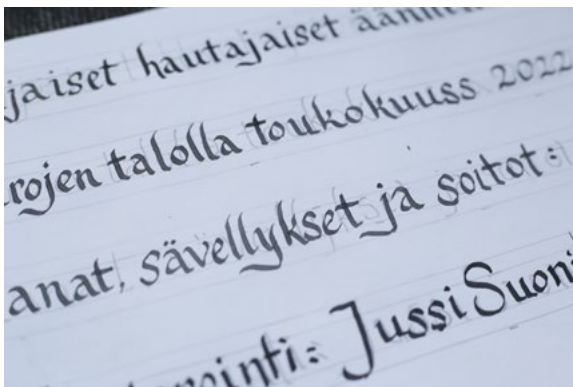 jaiset hautajaiset ääni
rojen talolla toukokuuss 2022
anat, sävellykset ja soitot:
ointi: Jussi Suoni